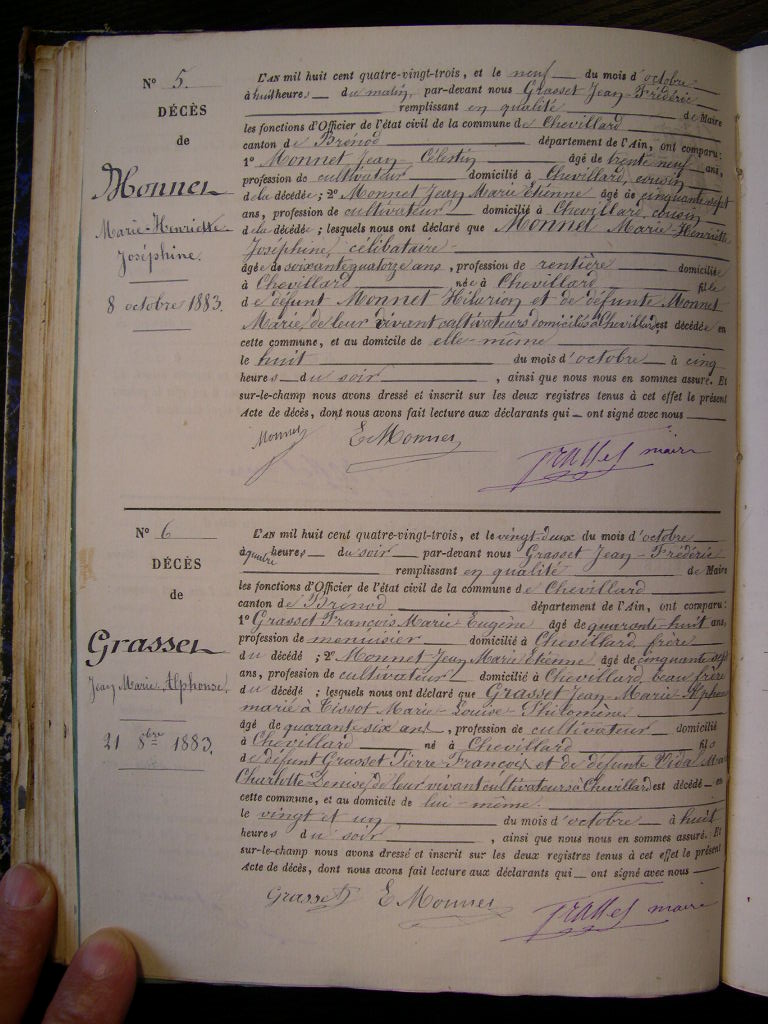 N° 5.
DÉCÈS
de
Monnet
Marie-Henriette-
Joséphine.
8 octobre 1883.
L'AN mil huit cent quatre-vingt-trois, et le neuf du mois d'octobre
à huit heures du matin, par-devant nous Grasset Jean-Frédéric
remplissant en qualité de Maire
les fonctions d'Officier de l'état civil de la commune de Chevillard
canton de Brénod département de l'Ain, ont comparu:
1° Monnet Jean Célestin âgé de trente neuf ans,
profession de cultivateur domicilié à Chevillard, cousin
de la décédée; 2° Monnet Jean Marie Etienne âgé de cinquante sept
ans, profession de cultivateur domicilié à Chevillard, cousin
de la décédée; lesquels nous ont déclaré que Monnet Marie-Henriette
Joséphine, célibataire
âgée de soixante quatorze ans, profession de rentière domiciliée
à Chevillard, née à Chevillard fille
de défunt Monnet Hilarion et de défunte Monnet
Marie, de leur vivant cultivateurs domiciliés à Chevillard est décédée en
cette commune, et au domicile de elle-même
le huit du mois d'octobre à cinq
heures du soir, ainsi que nous nous en sommes assuré. Et
sur-le-champ nous avons dressé et inscrit sur les deux registres tenus à cet effet le présent
Acte de décès, dont nous avons fait lecture aux déclarants qui ont signé avec nous
Monnet E Monnet Grasset maire
N° 6
DÉCÈS
de
Grasset
Jean Marie Alphonse.
21 8bre 1883.
L'AN mil huit cent quatre-vingt-trois, et le vingt-deux du mois d'octobre
à quatre heures du soir par-devant nous Grasset Jean-Frédéric
remplissant en qualité de Maire
les fonctions d'Officier de l'état civil de la commune de Chevillard
canton de Brénod département de l'Ain, ont comparu:
1° Grasset François Marie Eugène âgé de quarante-huit ans,
profession de menuisier domicilié à Chevillard, frère
du décédé; 2° Monnet Jean Marie Etienne âgé de cinquante sept
ans, profession de cultivateur domicilié à Chevillard, beau frère
du décédé; lesquels nous ont déclaré que Grasset Jean-Marie-Alphonse
marié à Tissot Marie-Louise-Philomène
âgé de quarante six ans, profession de cultivateur domicilié
à Chevillard né à Chevillard fils
de défunt Grasset Pierre François et de défunte Vidal
Charlotte Denise, de leur vivant cultivateurs à Chevillard est décédé en
cette commune, et au domicile de lui-même.
le vingt et un du mois d'octobre à huit
heures du soir, ainsi que nous nous en sommes assuré. Et
sur-le-champ nous avons dressé et inscrit sur les deux registres tenus à cet effet le présent
Acte de décès, dont nous avons fait lecture aux déclarants qui ont signé avec nous
Grasset E Monnet Grasset maire